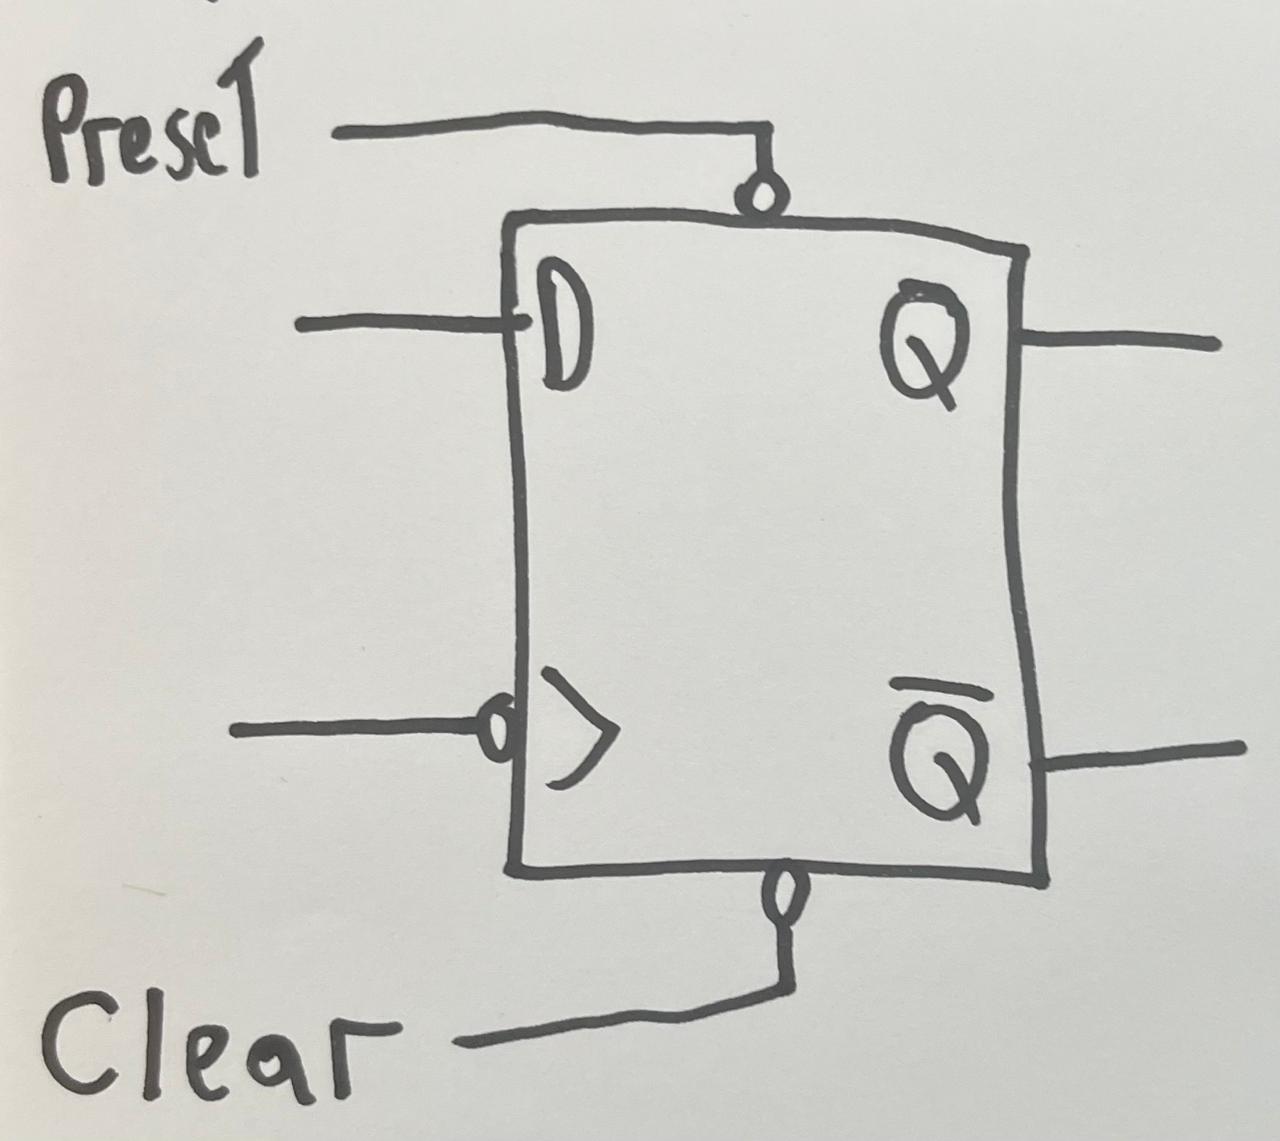 Preset
D
Q
>
Q̅
Clear